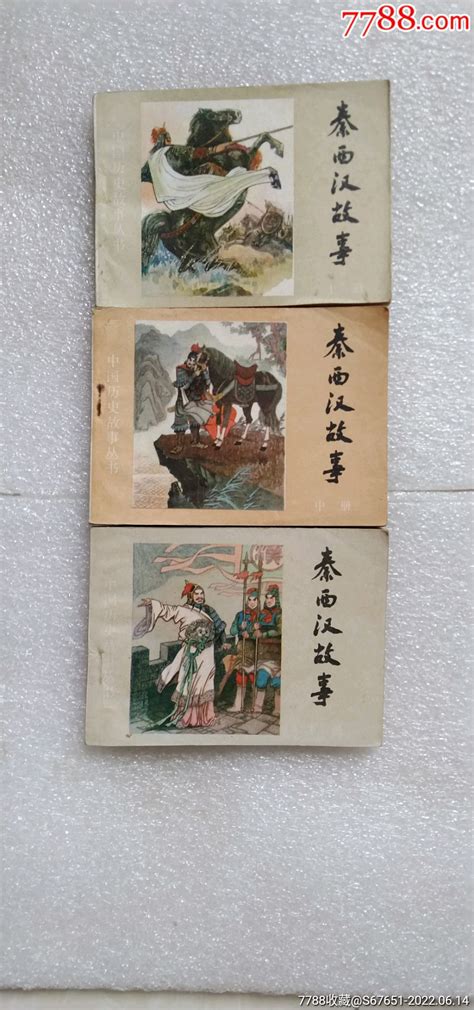 7788.com
秦西汉故事
中国历史故事丛书
秦西汉故事
中册
中国历史故事丛书
秦西汉故事
7788收藏@S67651-2022.06.14